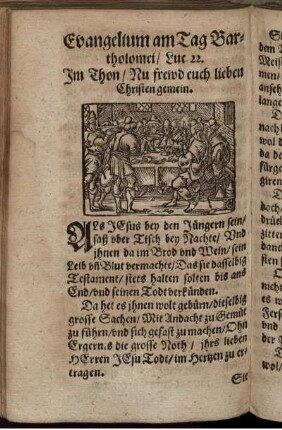 Evangelium am Tag Bar-
tholomei / Luc 22.
Im Thon / Nu frewd euch lieben
Christen gemein.
ALs JEsus bey den Jüngern sein /
saß vber Tisch bey Nachte / Vnd
jhnen da im Brod vnd Wein / sein
Leib vñ Blut vermachte / Das sie dasselbig
Testament / stets halten solten bis ans
End / vnd seinen Todt verkünden.
Da het es jhnen wolt gebürn / dieselbig
grosse Sachen / Mit Andacht zu Gemüt
zu führn / vnd sich gefast zu machen / Ohn
Ergern.s die grosse Noth / jhrs lieben
HErren JEsu Todt / im Hertzen zu er-
tragen.
Sie